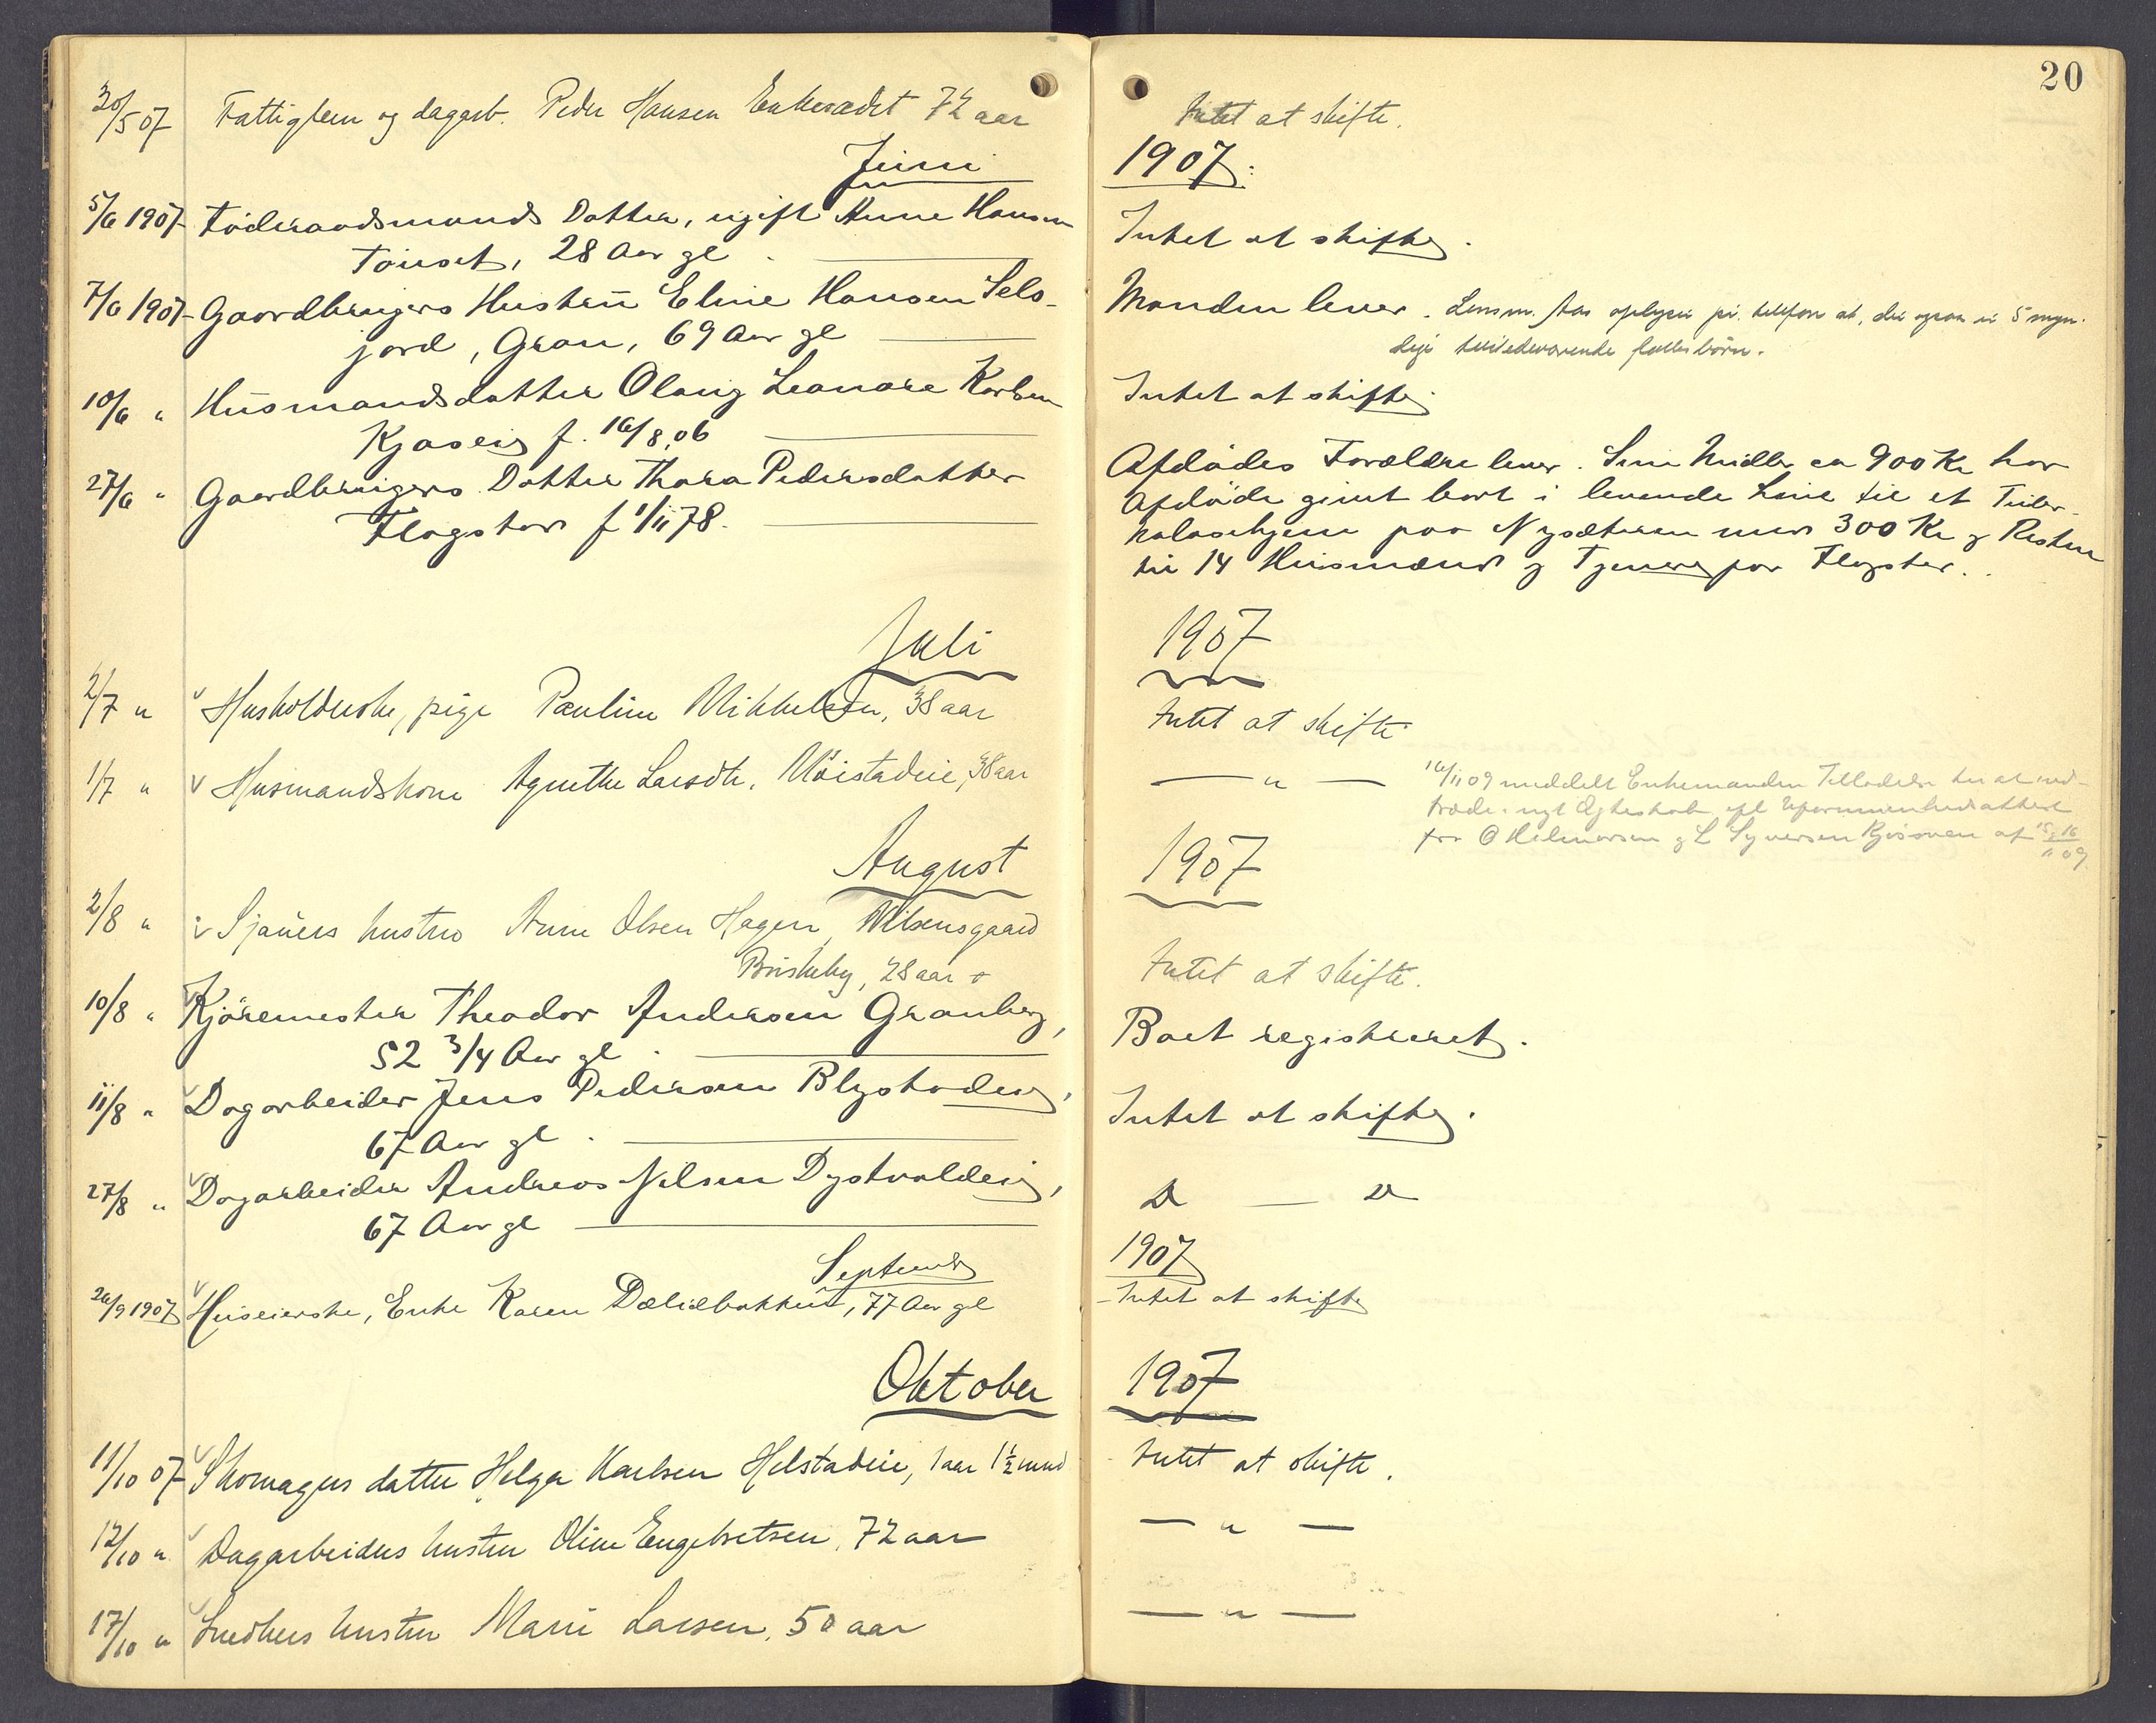 20
30/5 07 Fattiglem og dagarb. Peder Hansen Enkesædet 72 aar
Intet at skifte.
Juni
1907.
5/6 1907 Föderaadsmands Datter, ugift Anne Hansen
Tönset, 28 Aar gl.
Intet at skifte.
7/6 1907 Gaardbrugers Hustru Eline Hansen Sels-
jord, Gran, 69 Aar gl
Manden lever. Lensm. Aas oplyser pr. telefon at, der ogsaa er 5 myn-
dige tilstedeværende fællesbörn.
10/6 " Husmandsdatter Olaug Leonore Karlsen
Kjoseie f. 16/8 06
Intet at skifte.
27/6 " Gaardbrugers Datter Thora Pedersdatter
Flagstad f 1/11 78.
Afdödes Forældre lever. Sine Midler ca 900 Kr har
Afdöde givet bort i levende Live til et Tuber-
kulosehjem paa Nysæteren med 300 Kr og Resten
til 14 Husmænd og Tjenere paa Flagstad.
Juli
1907
2/7 " Husholderske, pige Pauline Mikkelsen, 38 aar
Intet at skifte
1/7 " Husmandskone Agnethe Larsdtr. Möistadeie, 38 aar
— " —
16/11 09 meddelt Enkemanden Tilladelse til at ind-
træde i nyt Ægteskab efl Uformuenhedsattest
fra O Hilmarsen og L Syversen Kjösvven af 15 & 16/11 09
August
1907
2/8 " Sjauers hustru Anne Olsen Hagen, Nilsensgaard
Briskeby, 28 aar
Intet at skifte.
10/8 " Kjöremester Theodor Andersen Granberg,
52 3/4 Aar gl.
Boet registreret.
11/8 " Dagarbeider Jens Pedersen Blystadeie,
67 Aar gl.
Intet at skifte.
27/8 " Dagarbeider Andreas Nilsen Dystvoldeie,
67 Aar gl
D — D
September
1907
26/9 1907 Huseierske, Enke Karen Dæliebakken, 77 Aar gl
Intet at skifte
Oktober
1907
11/10 07 Skomagers datter Helga Karlsen Helstadeie, 1 aar 1½ mnd
Intet at skifte.
12/10 " Dagarbeiders hustru Oline Engebretsen, 72 aar
— " —
17/10 " Snedkers hustru Marie Larsen, 50 aar
— " —